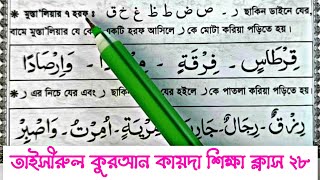 মুস্তা'লিয়ার ৭ হরফ : خ ص ض ط ظ غ ق - ر ছাকিন ডাইনে যের
বামে মুস্তা'লিয়ার যে কোন একটি হরফ আসিলে ر কে মোটা করিয়া পড়িতে হয়।
قِرْطَاسٍ ـ فِرْقَةٍ ـ مِرْصَادًا ـ وَاِرْصَادًا
ر এর নিচে যের এবং ر ছাকিন হয় ر কে পাতলা করিয়া পড়িতে হয়।
رِزْقٌ ـ رِجَالٌ ـ ـ اُمِرْتُ ـ وَاصْبِرْ
তাইসীরুল কুরআন কায়দা শিক্ষা ক্লাস ২৮